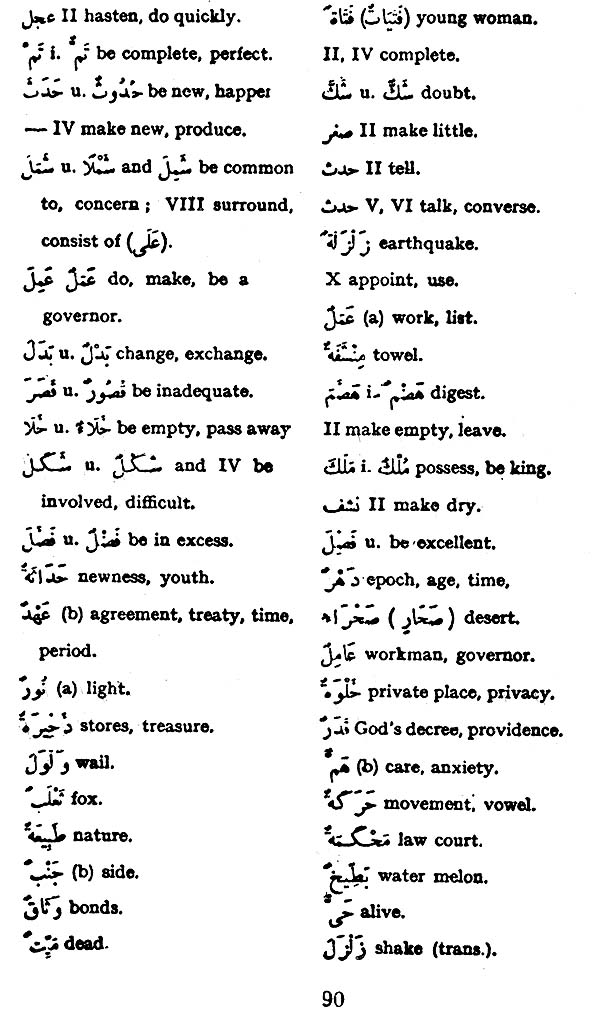 عجل II hasten, do quickly.
تَمَّ i. تَمٌّ be complete, perfect.
حَدَثَ u. حُدُوثٌ be new, happer
— IV make new, produce.
شَمَلَ u. شَمْلًا and شَمِلَ be common
to, concern ; VIII surround,
consist of (عَلَى).
عَمِلَ عَمَلٌ do, make, be a
governor.
بَدَلَ u. بَدْلٌ change, exchange.
قَصَرَ u. قُصُورٌ be inadequate.
خَلَا u. خَلَاءٌ be empty, pass away
شَكَلَ u. شَكْلٌ and IV be
involved, difficult.
فَضَلَ u. فَضْلٌ be in excess.
حَدَاثَةٌ newness, youth.
عَهْدٌ (b) agreement, treaty, time,
period.
نُورٌ (a) light.
ذَخِيرَةٌ stores, treasure.
وَلْوَلَ wail.
ثَعْلَبٌ fox.
طَبِيعَةٌ nature.
جَنْبٌ (b) side.
وَثَاقٌ bonds.
مَيِّتٌ dead.
فَتَاةٌ (فَتَيَاتٌ) young woman.
II, IV complete.
شَكَّ u. شَكٌّ doubt.
صغر II make little.
حدث II tell.
حدث V, VI talk, converse.
زَلْزَلَةٌ earthquake.
X appoint, use.
عَمَلٌ (a) work, list.
مِنْشَفَةٌ towel.
هَضَمَ i. هَضْمٌ digest.
II make empty, leave.
مَلَكَ i. مُلْكٌ possess, be king.
نشف II make dry.
فَضِلَ u. be excellent.
دَهْرٌ epoch, age, time,
صَحْرَاء (صَحَارٍ) desert.
عَامِلٌ workman, governor.
خَلْوَةٌ private place, privacy.
قَدَرٌ God's decree, providence.
هَمٌّ (b) care, anxiety.
حَرَكَةٌ movement, vowel.
مَحْكَمَةٌ law court.
بَطِّيخٌ water melon.
حَىٌّ alive.
زَلْزَلَ shake (trans.).
90